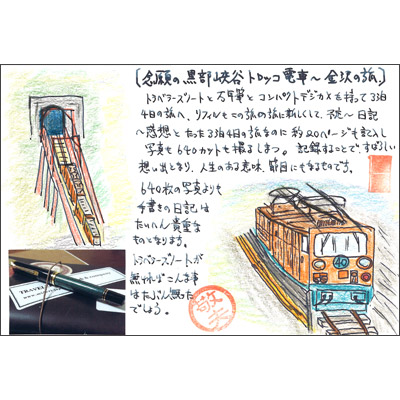 〔念願の黒部峡谷トロッコ電車〜金沢の旅〕
トラベラーズノートと万年筆とコンパクトデジカメを持って3泊
4日の旅へ、リフィルもこの旅の旅に新しくして、予定〜日記
〜感想とたった3泊4日の旅なのに約20ページも記入し
写真も640カット撮るしまつ。記録することで、すばらしい
想い出となり、人生のある意味、節目にもなるものです。
640枚の写真よりも
手書きの日記は
たいへん貴重な
ものとなります。
トラベラーズノートが
無ければこんな事
はたぶん無かった
でしょう。
40
敬夫
TRAVEL